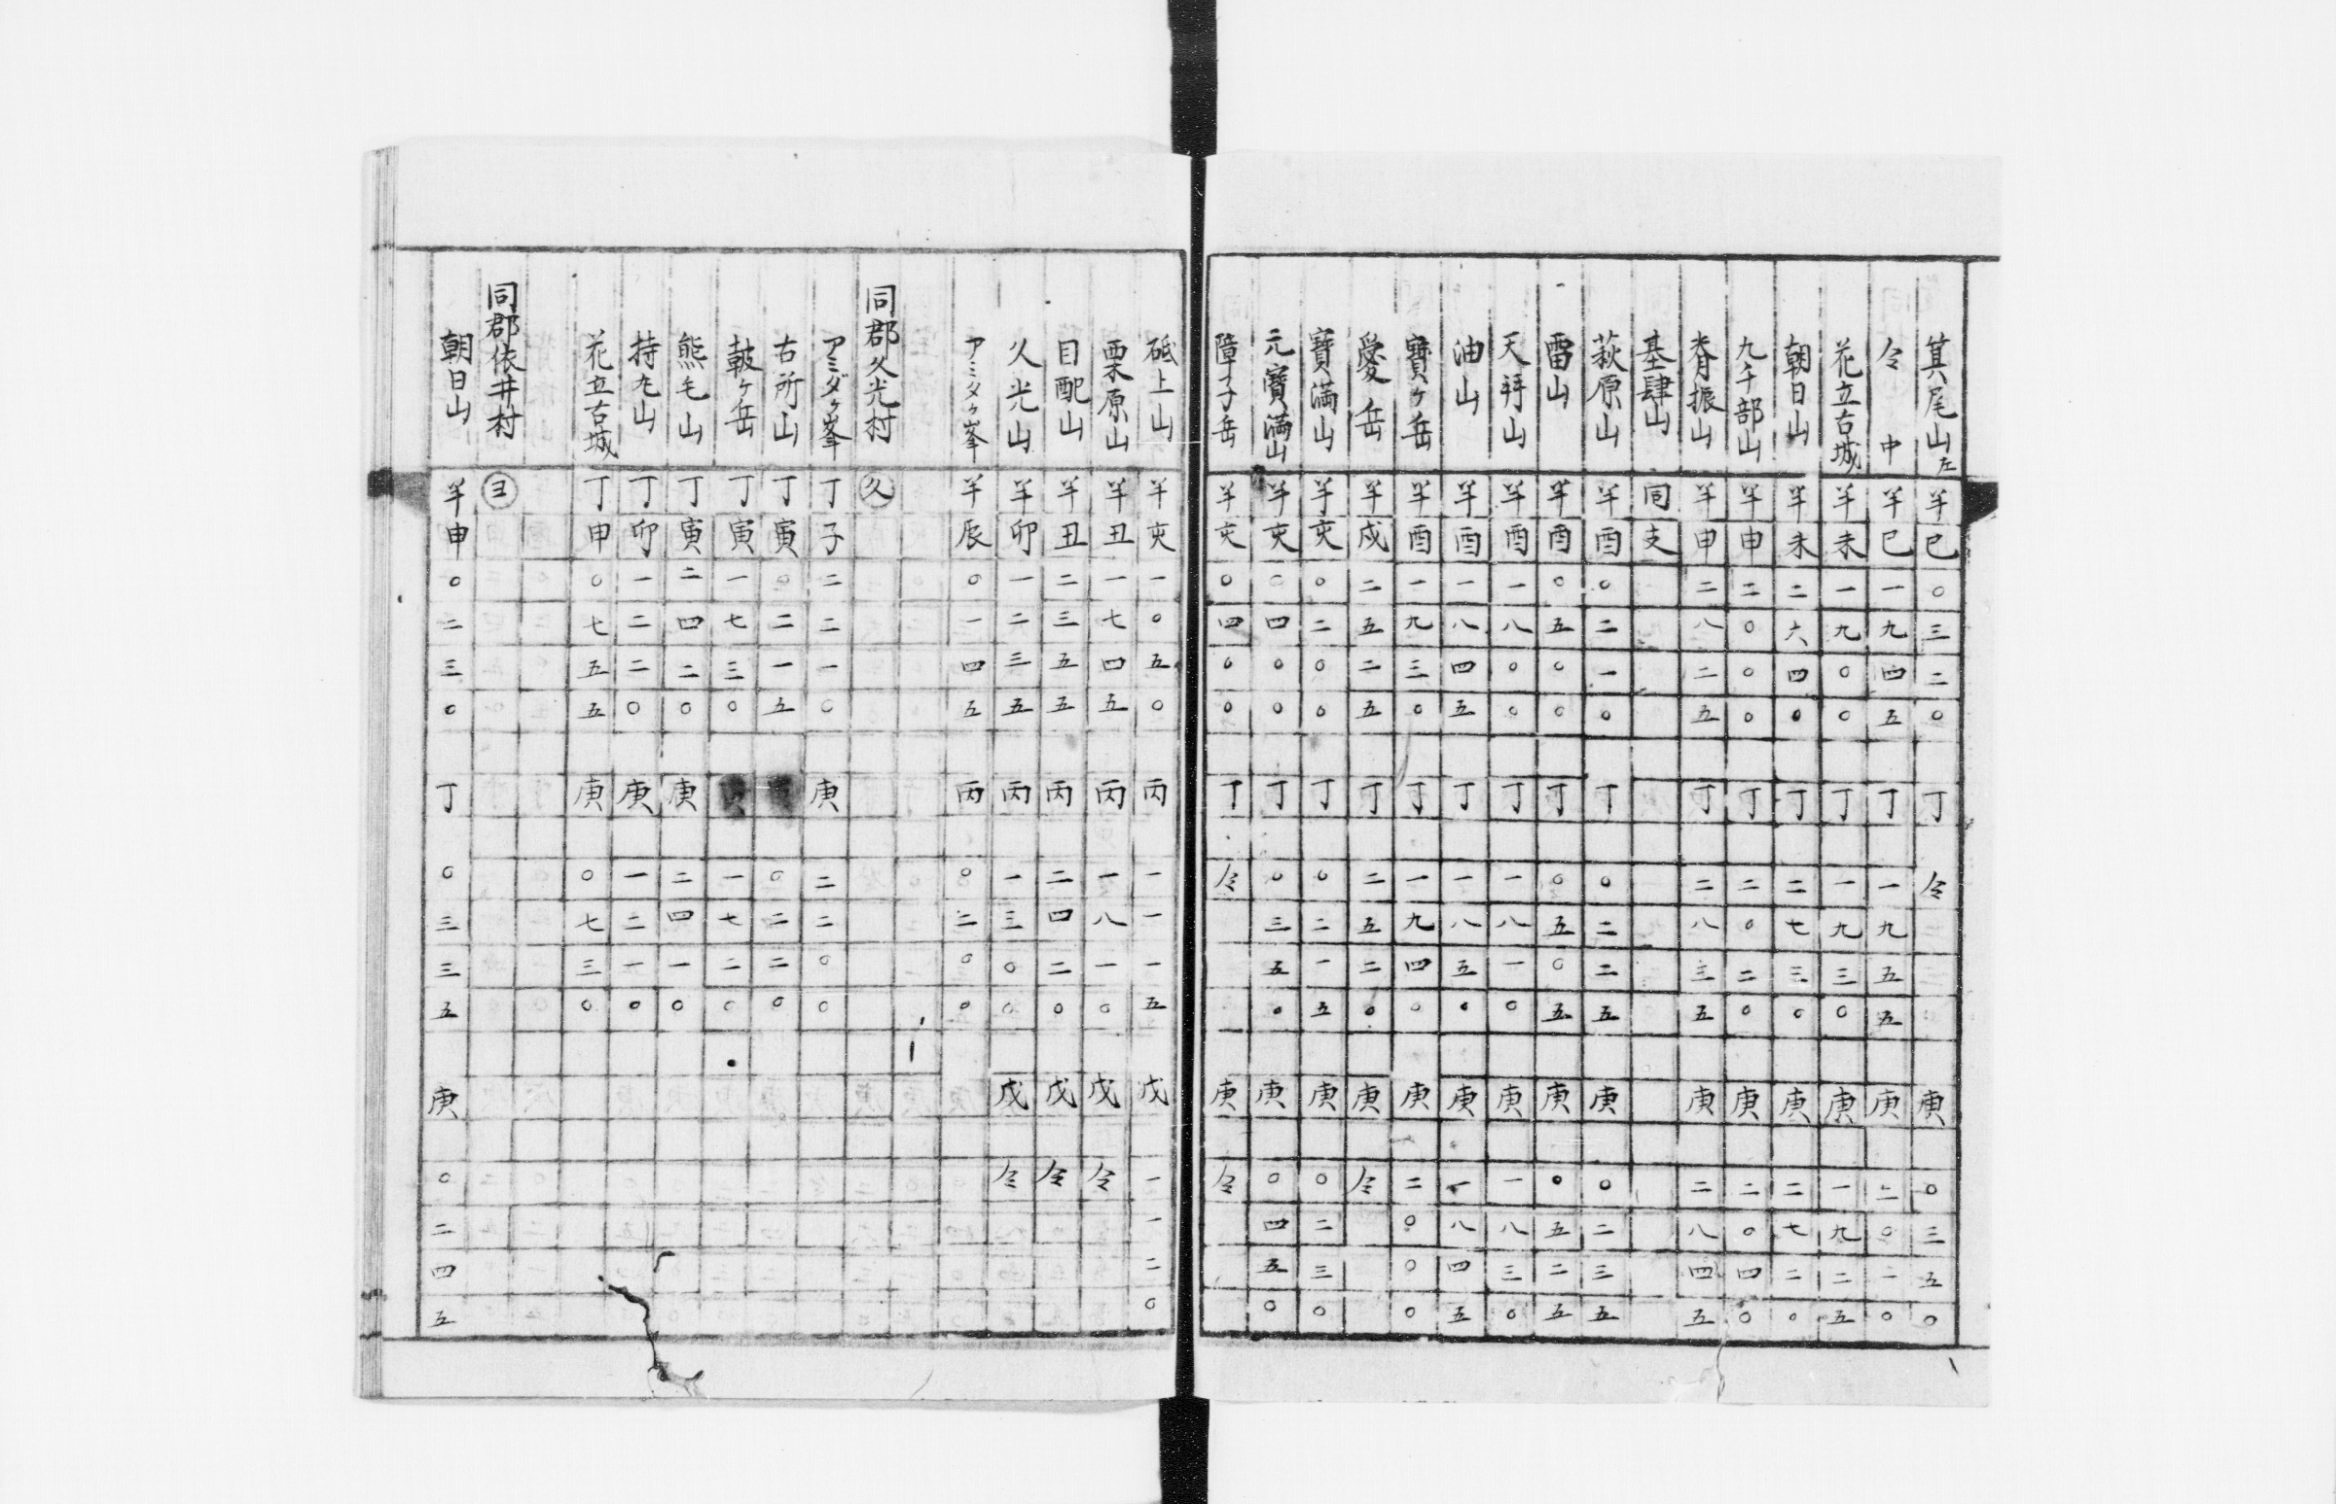 箕尾山左 羊巳〇三二〇 丁仝 庚〇三五〇
仝中 羊巳一九四五 丁一九五五 庚二〇二〇
花立古城 羊未一九〇〇 丁一九三〇 庚一九二五
朝日山 羊未二六四〇 丁二七三〇 庚二七二〇
九千部山 羊申二〇〇〇 丁二〇二〇 庚二〇四〇
脊振山 羊申二八二五 丁二八三五 庚二八四五
基肄山 同支
萩原山 羊酉〇二一〇 丁〇二二五 庚〇二三五
雷山 羊酉〇五〇〇 丁〇五〇五 庚〇五二五
天拝山 羊酉一八〇〇 丁一八一〇 庚一八三〇
油山 羊酉一八四五 丁一八五〇 庚一八四五
寶ケ岳 羊酉一九三〇 丁一九四〇 庚二〇〇〇
愛岳 羊戌二五二五 丁二五二〇 庚仝
寶満山 羊亥〇二〇〇 丁〇二一五 庚〇二三〇
元寶満山 羊亥〇四〇〇 丁〇三五〇 庚〇四五〇
障子岳 羊亥〇四〇〇 丁仝 庚仝
砥上山 羊亥一〇五〇 丙一一一五 戊一一二〇
栗原山 羊丑一七四五 丙一八一〇 戊仝
目配山 羊丑二三五五 丙二四二〇 戊仝
久光山 羊卯一二三五 丙一三〇〇 戊仝
アミタケ峯 羊辰〇一四五 丙〇二〇〇
同郡久光村 久
アミダケ峯 丁子二二一〇 庚二二〇〇
古所山 丁寅〇二一五 〇二二〇
鼓ケ岳 丁寅一七三〇 一七二〇
熊毛山 丁寅二四二〇 庚二四一〇
持丸山 丁卯一二二〇 庚一二一〇
花立古城 丁申〇七五五 庚〇七三〇
同郡依井村 ヨ
朝日山 羊申〇二三〇 丁〇三三五 庚〇二四五